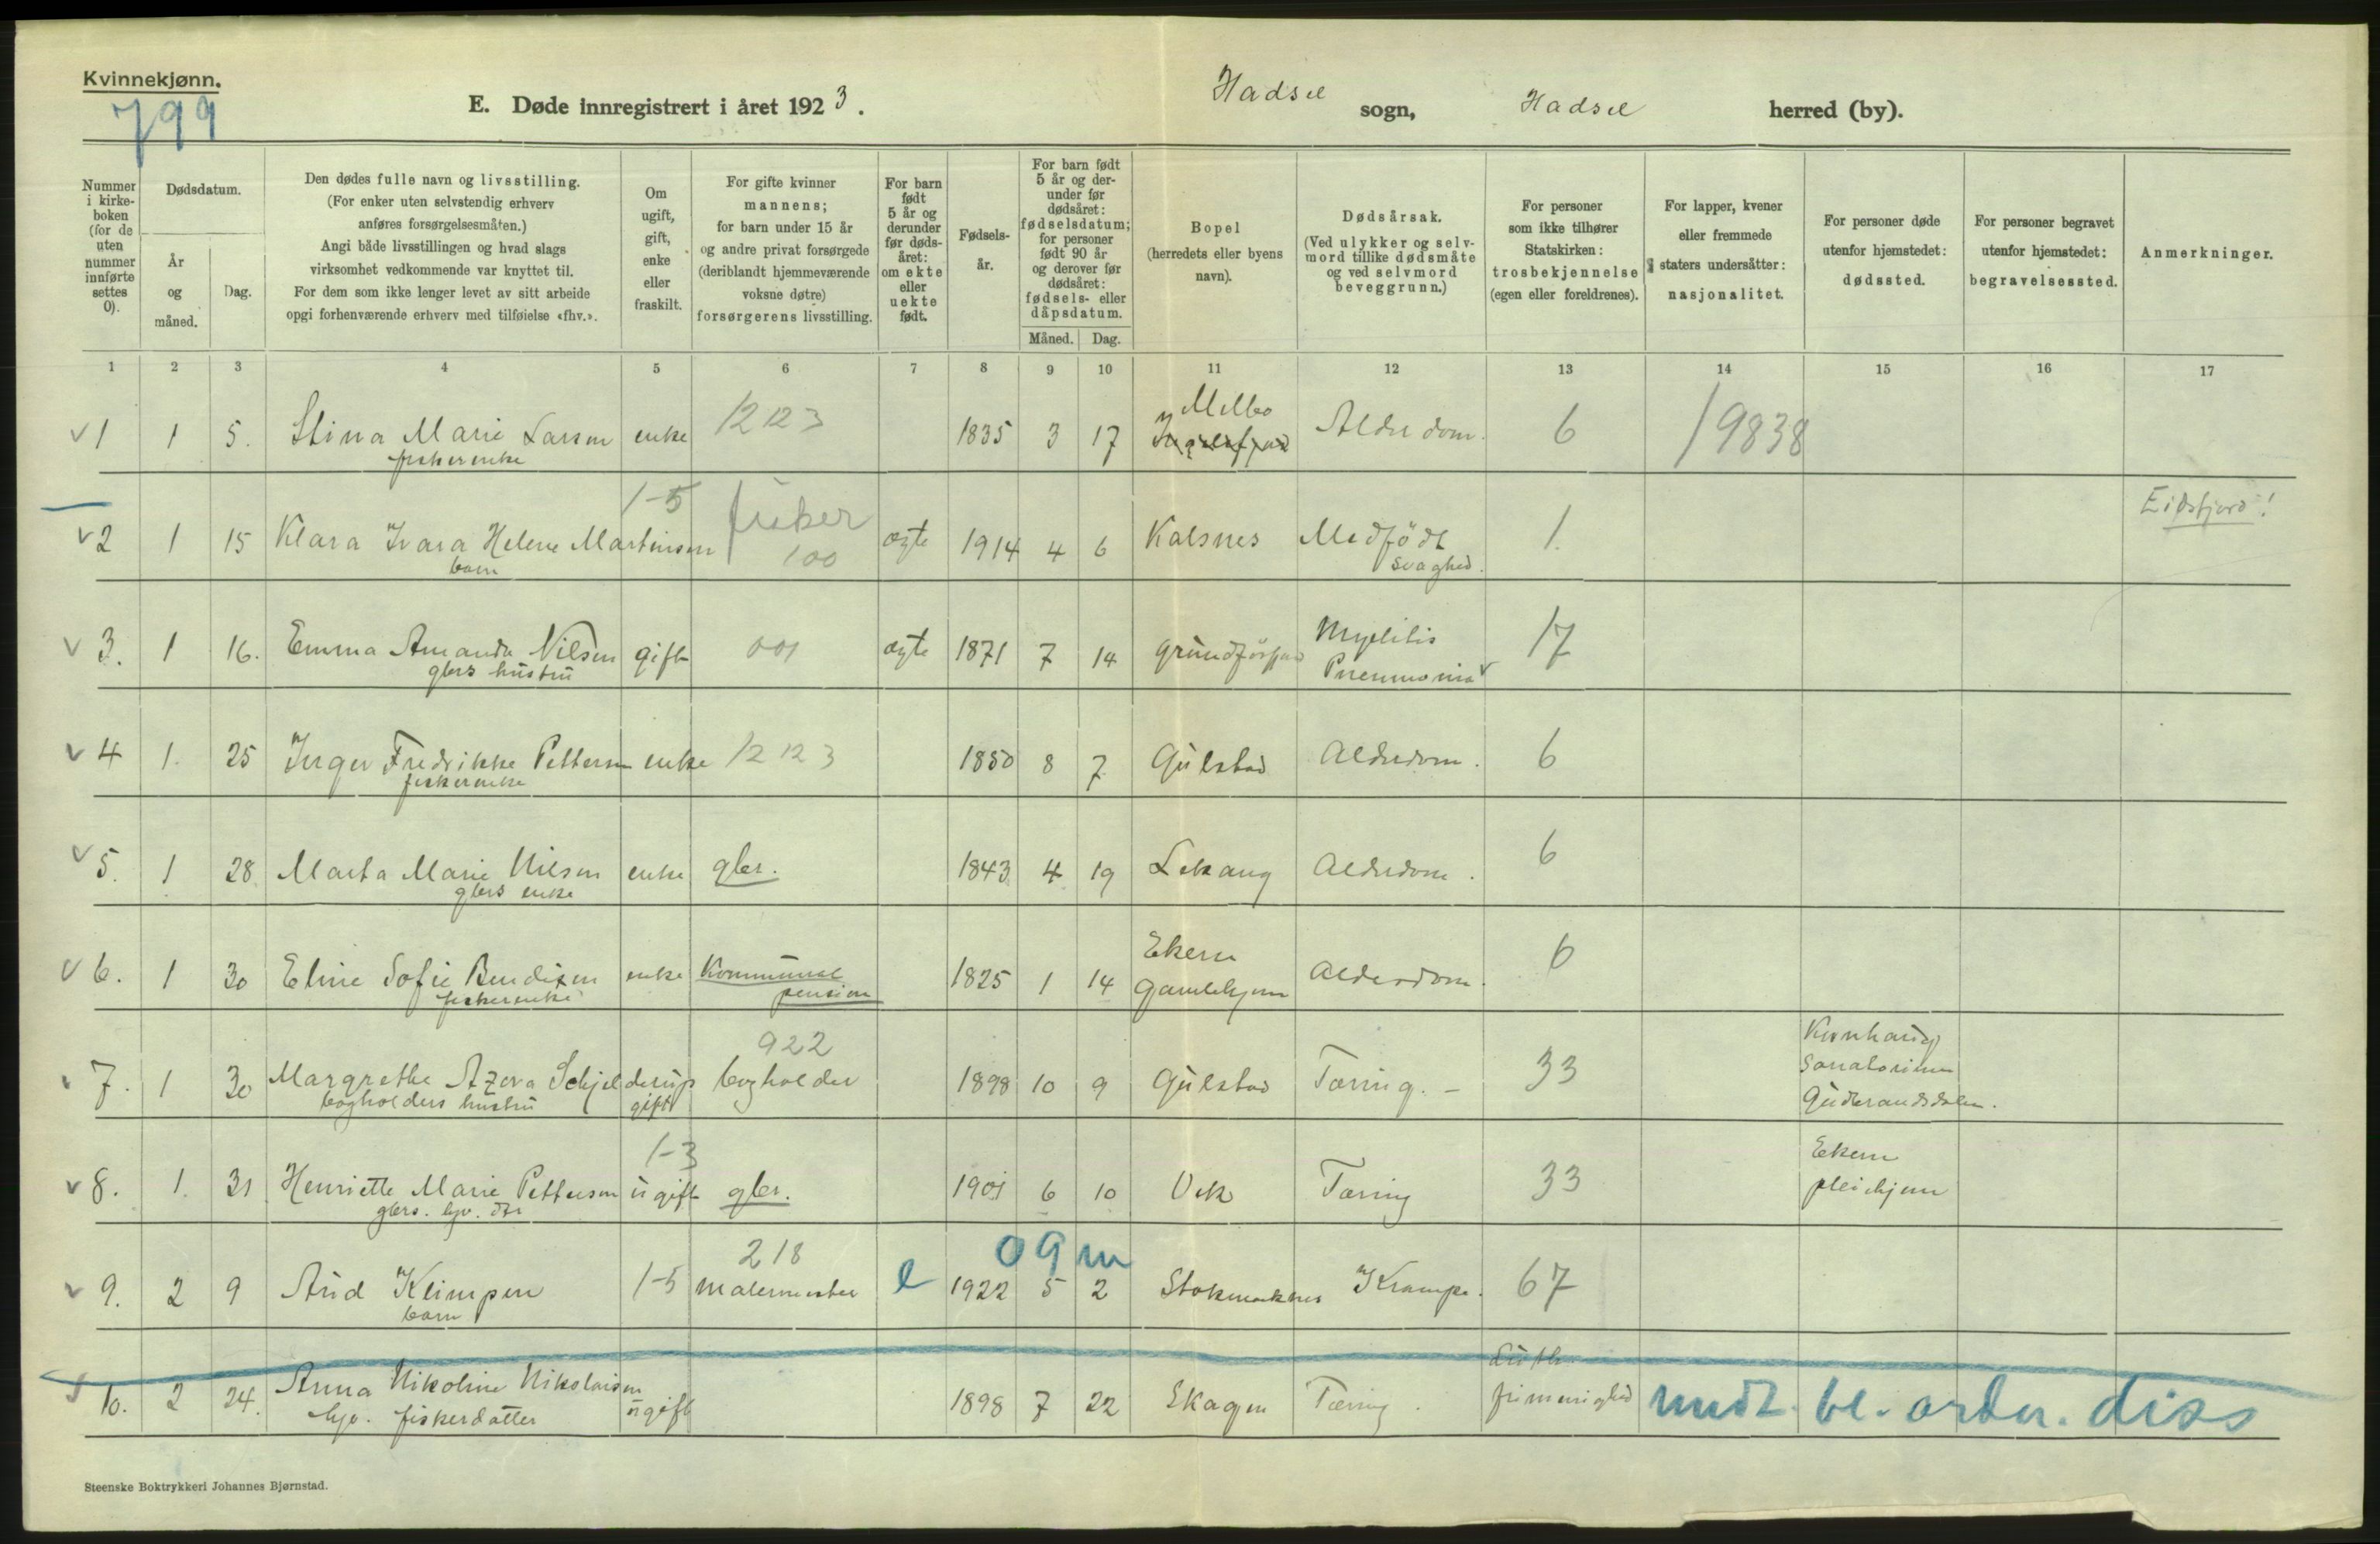 Kvinnekjønn.
799
E. Døde innregistrert i året 1923. Hadsel sogn, Hadsel herred (by).
Nummer i kirke-boken (for de uten nummer innførte settes 0).
Dødsdatum.
År og måned.
Dag.
Den dødes fulle navn og livsstilling.
(For enker uten selvstendig erhverv
anføres forsørgelsesmåten.)
Angi både livsstillingen og hvad slags
virksomhet vedkommende var knyttet til.
For dem som ikke lenger levet av sitt arbeide
opgi forhenværende erhverv med tilføielse «fhv.».
Om ugift, gift, enke eller fraskilt.
For gifte kvinner
mannens;
for barn under 15 år
og andre privat forsørgede
(deriblandt hjemmeværende
voksne døtre)
forsørgerens livsstilling.
For barn født 5 år og derunder før døds-året: om ekte eller uekte født.
Fødsels-år.
For barn født 5 år og der-under før dødsåret: fødselsdatum; for personer født 90 år og derover før dødsåret: fødsels- eller dåpsdatum.
Måned. Dag.
Bopel
(herredets eller byens
navn).
Dødsårsak.
(Ved ulykker og selv-
mord tillike dødsmåte
og ved selvmord
beveggrunn.)
For personer
som ikke tilhører
Statskirken:
trosbekjennelse
(egen eller foreldrenes).
For lapper, kvener
eller fremmede
staters undersåtter:
nasjonalitet.
For personer døde
utenfor hjemstedet:
dødssted.
For personer begravet
utenfor hjemstedet:
begravelsessted.
Anmerkninger.
1 2 3 4 5 6 7 8 9 10 11 12 13 14 15 16 17
Melbo
1 1 5. Stina Marie Larsen enke 12 12 3 1835 3 17 Alderdom. 6 19838
fiskerenke
1-5 fisker Eidsfjord!
2 1 15 Klara Ivara Helene Martinsen 100 ægte 1914 4 6 Kalsnes Medfödt 1.
barn svaghed.
3. 1 16. Emma Amanda Nilsen gift 001 ægte 1871 7 14 Myelitis 17
gbrs hustru Pneumonia
4 1. 25 Inger Fredrikke Pettersen enke 12 12 3 1850 8 7 Gulstad Alderdom. 6
fiskerenke
5. 1 28 Marta Marie Nilsen enke gbr. 1843 4 19 Lekang Alderdom. 6
gbrs enke
Ekern
6. 1 30 Eline Sofie Bendixen enke Kommunal 1825 1 14 Gamlehjem Alderdom. 6
fiskerenke pension
922 Kornhaug
7. 1 30 Margrethe Azora Schjelderup bogholder 1898 10 9 Gulstad Tæring. - 33 Sanatorium
bogholders hustru gift Gudbrandsdalen.
1-3 Ekern
8. 1. 31 Henriette Marie Pettersen ugift gbr. 1901 6 10 Vik Tæring 33 pleiehjem
gbrs. hjv. dtr
218 09m
9. 2 9 Aud Klimpen 1-5 malermester e 1922 5 2 Stokmarknes Krampe. 67
barn
Luth.
10. 2 24. Anna Nikoline Nikolaisen ugift 1898 7 22 Skagen Tæring. frimenighed
hjv. fiskerdatter
diss
Steenske Boktrykkeri Johannes Bjørnstad.